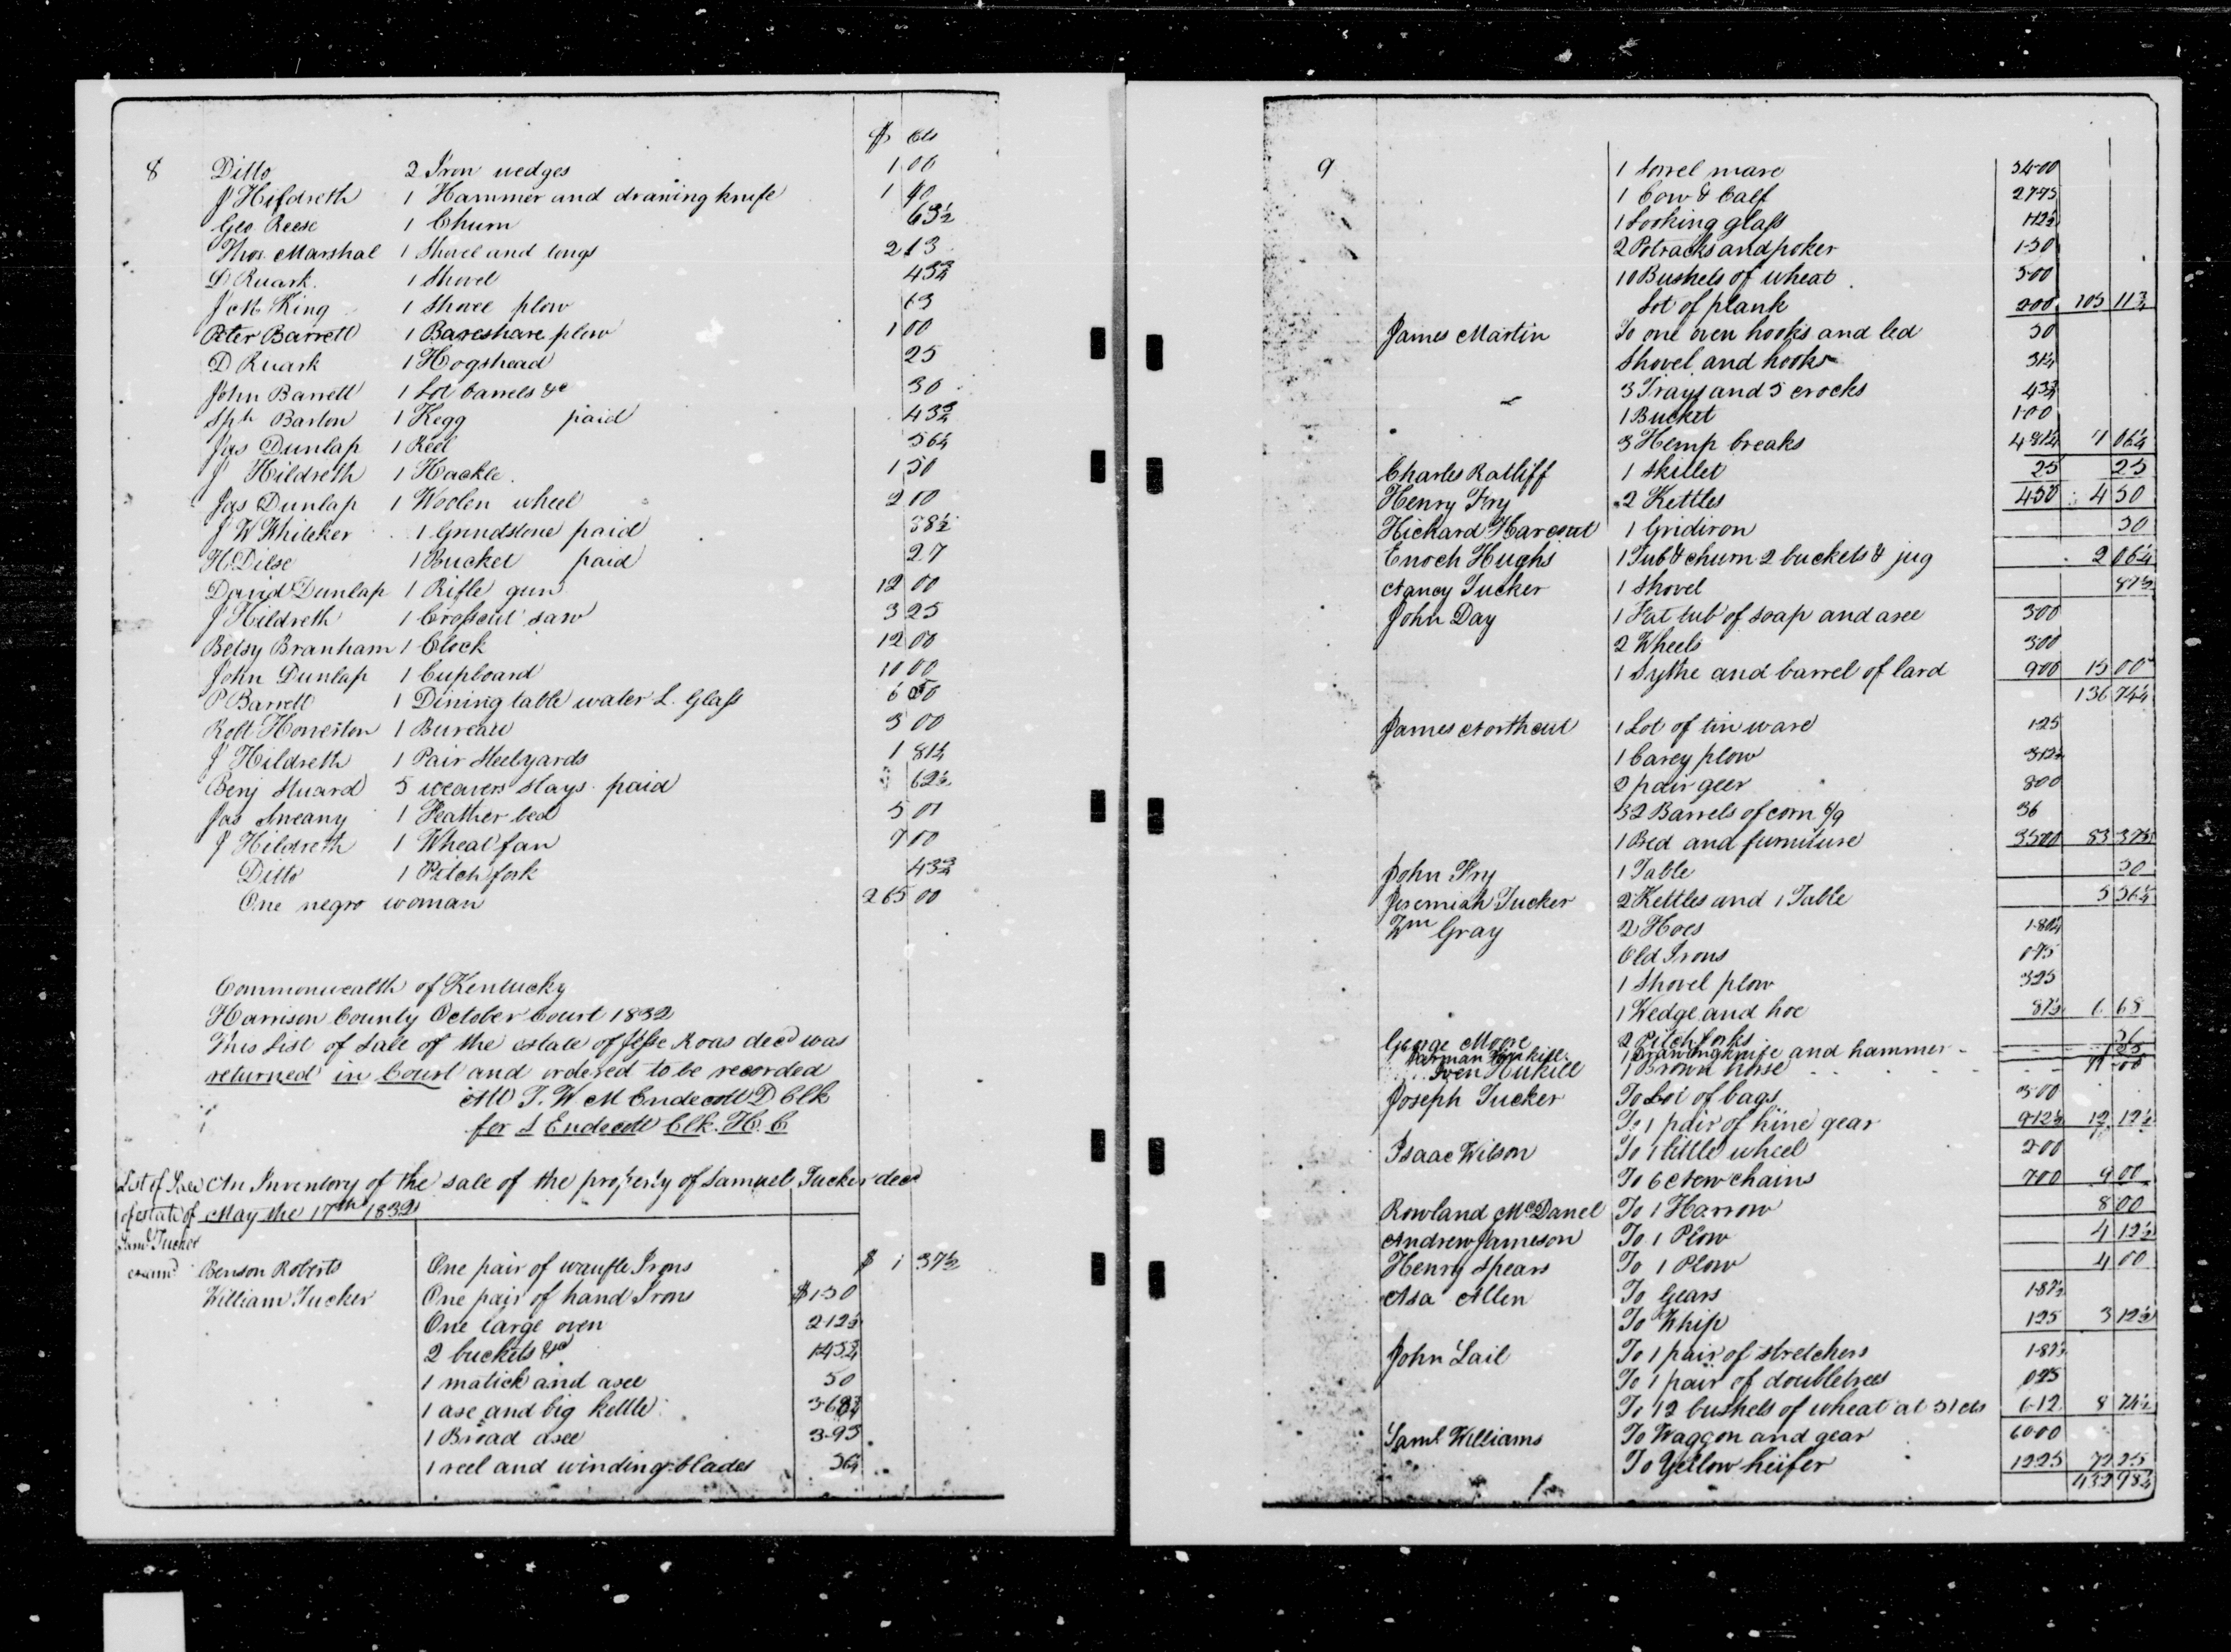 $ Cts
8 Ditto 2 Iron wedges 1 00
J Hildreth 1 Hammer and drawing knife 1 40
Geo. Reese 1 Churn 63½
Thos. Marshal 1 Shovel and tongs 2 13
D Ruark 1 Shovel 43¾
J M King 1 Shovel plow 63
Peter Barrett 1 Bareshare plow 1 00
D Ruark 1 Hogshead 25
John Barrett 1 Lot barrels &c 30
Sph Barton 1 Kegg paid 43¾
Jas Dunlap 1 Reel 56¼
J Hildreth 1 Hackle 1 50
Jas Dunlap 1 Woolen wheel 2 10
J W Whiteker 1 Grindstone paid 38½
H. Dilse 1 Bucket paid 27
David Dunlap 1 Rifle gun 12 00
J Hildreth 1 Crosscut saw 3 25
Betsy Branham 1 Clock 12 00
John Dunlap 1 Cupboard 10 00
P Barrett 1 Dining table water L. Glass
Robt Howerton 1 Bureau 3 00
J Hildreth 1 Pair Steelyards 1 81¼
Benj Stuard 5 weavers slays paid 62½
Jas Smeany 1 Feather bed 5 01
J Hildreth 1 Wheat fan 7 00
Ditto 1 Pitch fork 43¾
One negro woman 265 00
Commonwealth of Kentucky
Harrison County October Court 1832
This List of Sale of the estate of Jesse Roas decd was
returned in Court and ordered to be recorded
Att T. W. M Endecott D Clk
for L Endecott Clk. H. C
List of Sale An Inventory of the sale of the property of Samuel Tucker decd
of estate of May the 17th 1832
Saml Tucker
examd Benson Roberts One pair of waufle Irons $ 1 37½
William Tucker One pair of hand Irons $1-50
One large oven 2-12½
2 buckets &c 1-43¾
1 matick and axe 50
1 axe and big kettle 3-68¾
1 Broad axe 3-93
1 reel and winding blades 56¼
9 1 Sorrel mare 34-00
1 Cow & Calf 27-75
1 Looking glass 1-12½
2 Potracks and poker 1-50
10 Bushels of wheat 5-00
Lot of plank 200 105 11¾
James Martin To one oven hooks and led 50
Shovel and hooks 31¼
3 Trays and 5 crocks 43¾
1 Bucket 1-00
3 Hemp breaks 4 81¼ 7 06¼
Charles Ratliff 1 Skillet 25 25
Henry Fry 2 Kettles 450 4 50
Hickard Harcourt 1 Gridiron 50
Enoch Hughs 1 Tub & churn 2 buckets & jug 2 06¼
Nancy Tucker 1 Shovel 87½
John Day 1 Fat tub of soap and axe 3-00
2 Wheels 3-00
1 Sythe and barrel of lard 900 15 00
136 74½
James Northcut 1 Lot of tin ware 1-25
1 Carey plow 3-12½
2 pair geer 800
32 Barrels of corn 6/9 36
1 Bed and furniture 35-00 83 37½
John Fry 1 Table 50
Jeremiah Tucker 2 Kettles and 1 Table 5 56¼
Wm Gray 2 Hoes
Old Irons 0-75
1 Shovel plow 325
1 Wedge and hoe 87½ 6 68
George Moore 2 Pitch forks 26
1 Drawingknife and hammer 1 25
1 Brown horse
Joseph Tucker To Lot of bags 3-00
To 1 pair of hine gear 9-12½ 12 12½
Isaac Wilson To 1 little wheel 2-00
To 6 New chains 700 9 00
Rowland McDanel To 1 Harrow 8 00
Andrew Jameson To 1 Plow 4 12½
Henry Spears To 1 Plow 4 00
Asa Allen To Gears 1-87½
To Whip 125 3 12½
John Lail To 1 pair of stretchers 1-87½
To 1 pair of doubletrees
To 12 bushels of wheat at 51 cts 6-12 8 74½
Saml Williams To Waggon and gear 60-00
To Yellow heifer 12-25 72 25
432 98¾